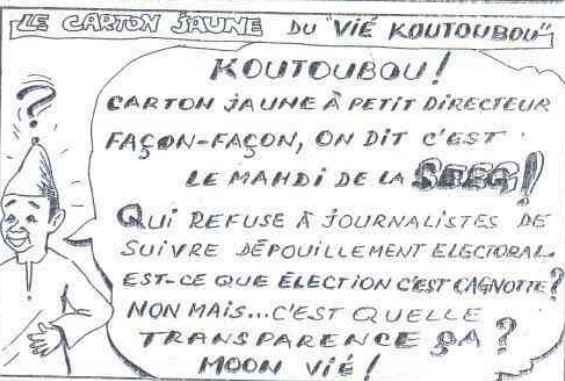 LE CARTON JAUNE DU "VIÉ KOUTOUBOU"
?
KOUTOUBOU!
CARTON JAUNE À PETIT DIRECTEUR
FAÇON-FAÇON, ON DIT C'EST
LE MAHDI DE LA SEEG!
QUI REFUSE À JOURNALISTES DE
SUIVRE DÉPOUILLEMENT ELECTORAL.
EST-CE QUE ÉLECTION C'EST CAGNOTTE?
NON MAIS...C'EST QUELLE
TRANSPARENCE ÇA?
MOON VIÉ!